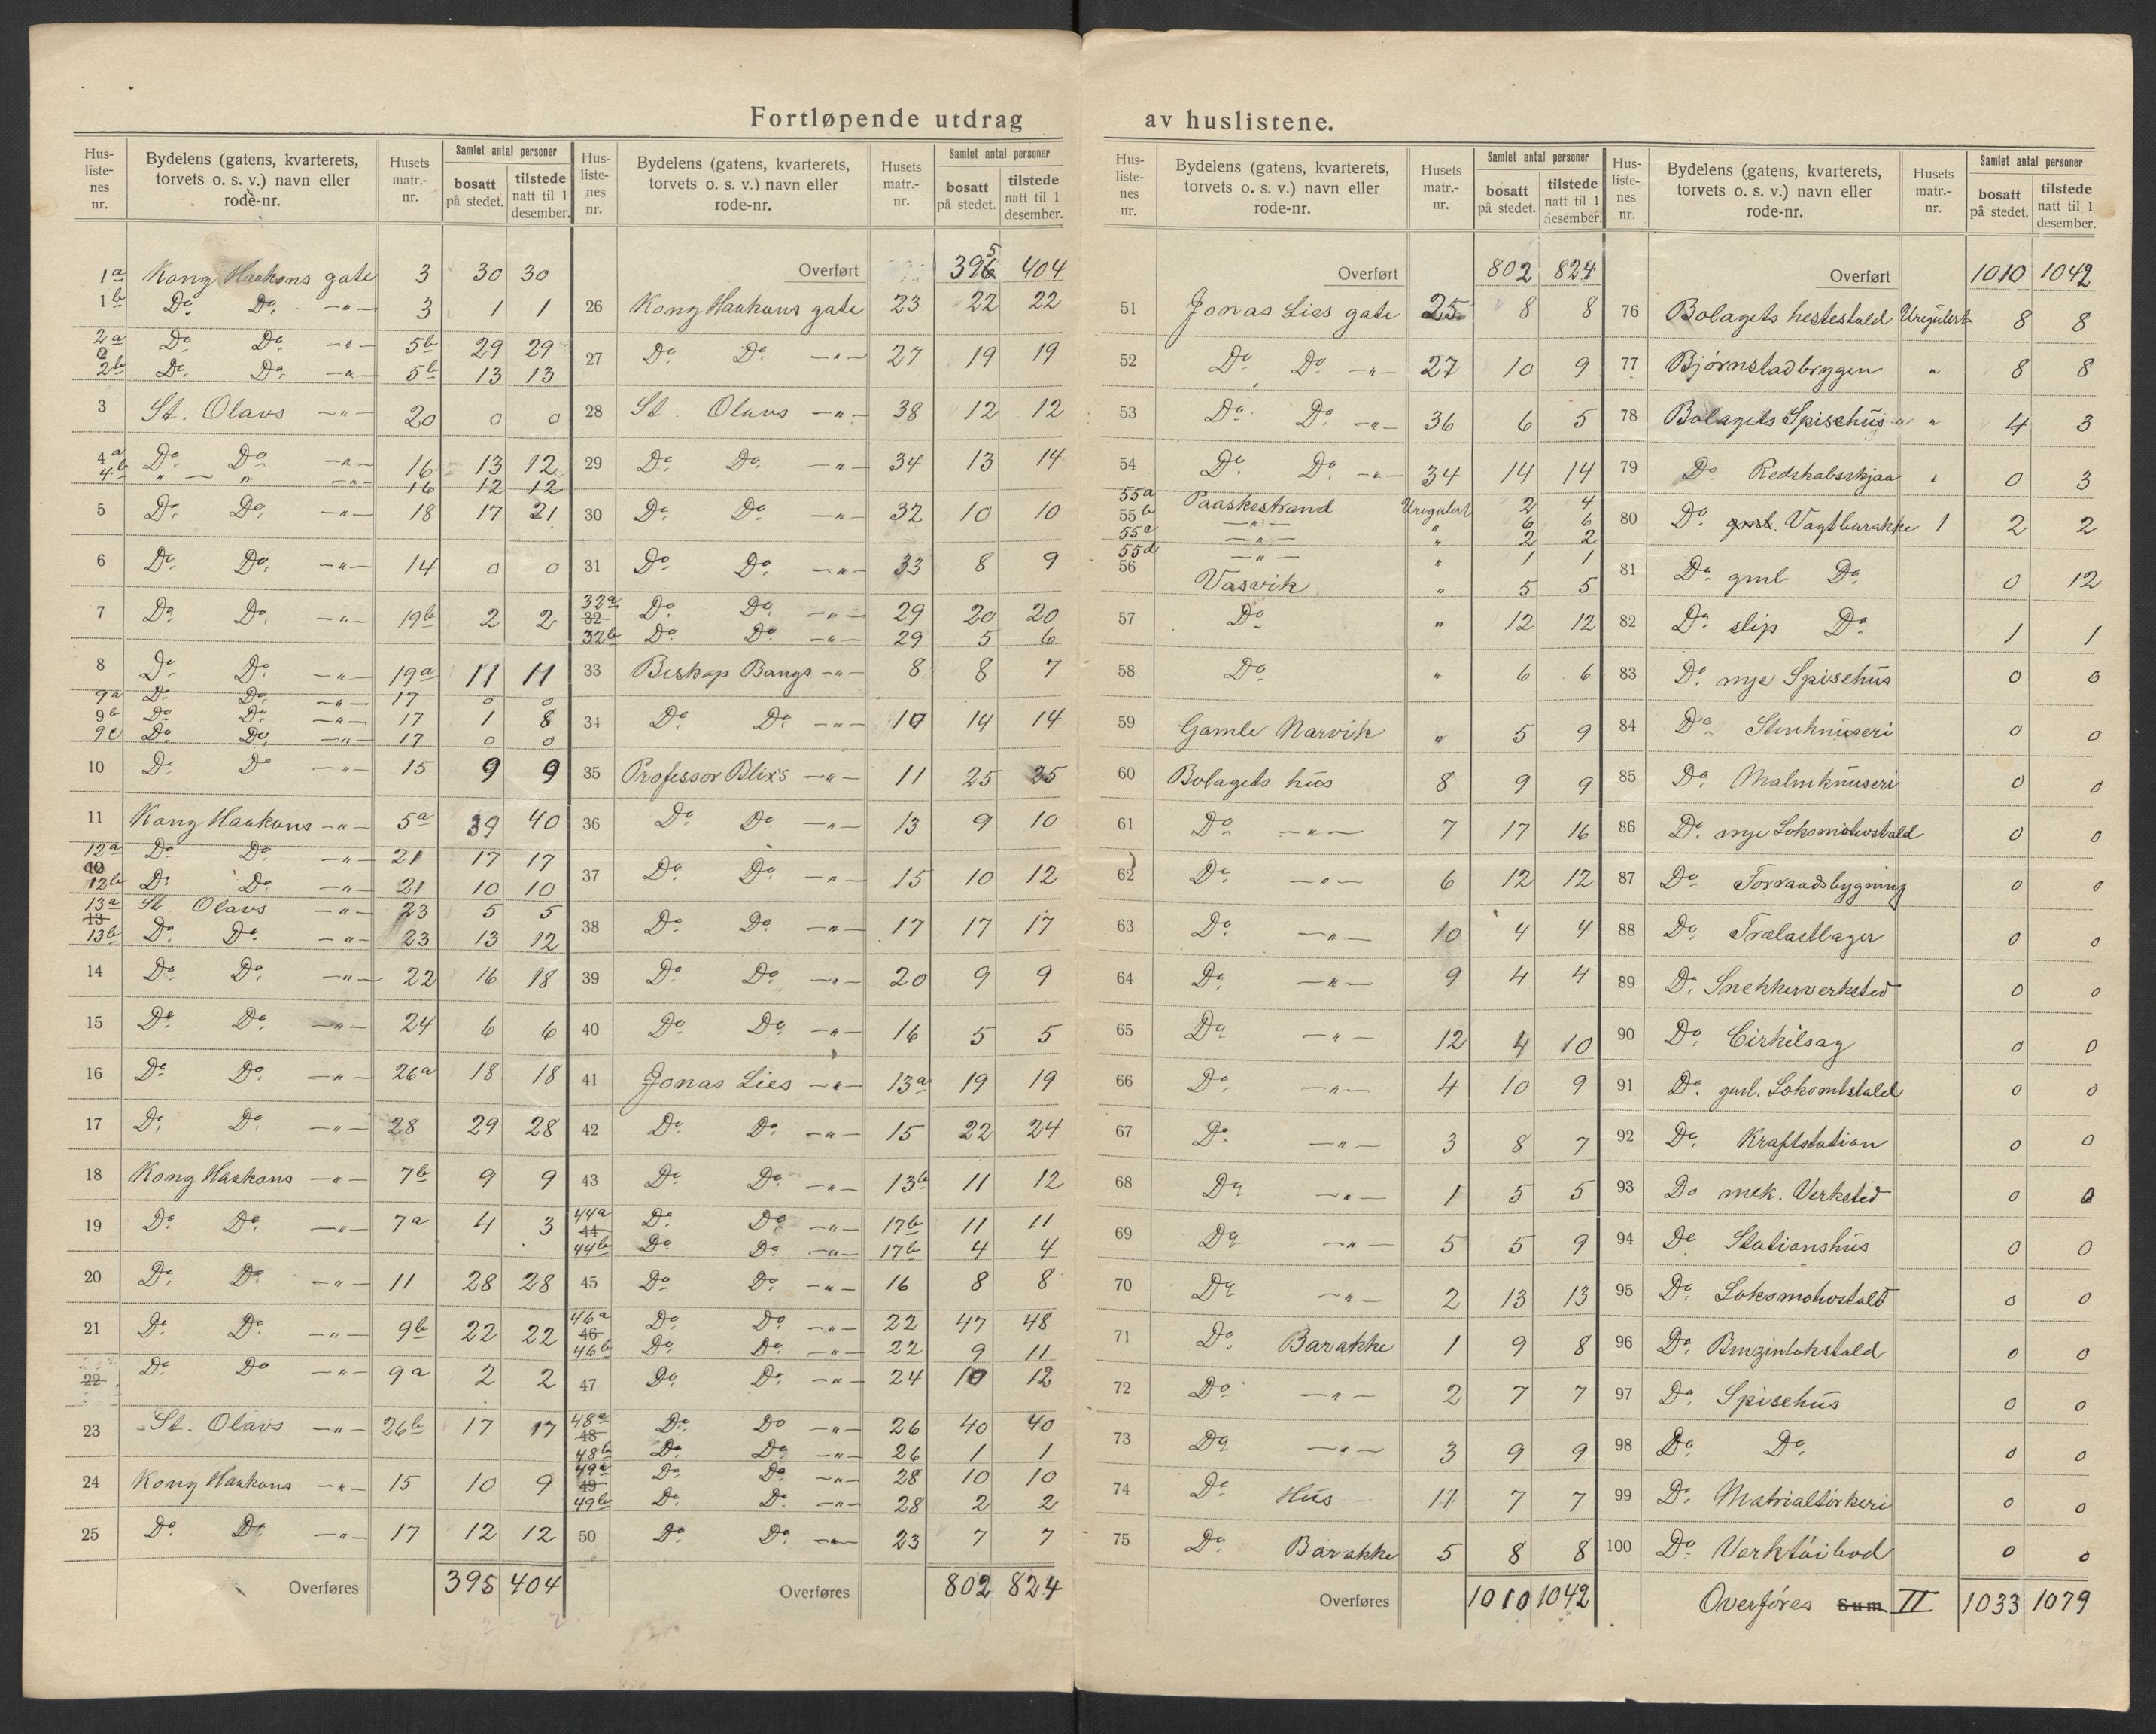 Fortløpende utdrag av huslistene.
Hus-liste-nes nr. Bydelens (gatens, kvarterets, torvets o. s. v.) navn eller rode-nr. Husets matr.-nr. Samlet antal personer bosatt på stedet. tilstede natt til 1 desember.
1a Kong Haakons gate 3 30 30
1b Do Do -"- 3 1 1
2a Do Do -"- 5b 29 29
2b Do Do -"- 5b 13 13
3 St. Olavs -"- 20 0 0
4a Do Do -"- 16 13 12
4b " - " -"- 16 12 12
5 Do Do -"- 18 17 21
6 Do Do -"- 14 0 0
7 Do Do -"- 19b 2 2
8 Do Do -"- 19a 11 11
9a Do Do -"- 17 0 0
9b Do Do -"- 17 1 8
9c Do Do -"- 17 0 0
10 Do Do -"- 15 9 9
11 Kong Haakons -"- 5a 39 40
12a Do Do -"- 21 17 17
12b Do Do -"- 21 10 10
13a St Olavs -"- 23 5 5
13
13b Do Do -"- 23 13 12
14 Do Do -"- 22 16 18
15 Do Do -"- 24 6 6
16 Do Do -"- 26a 18 18
17 Do Do -"- 28 29 28
18 Kong Haakons -"- 7b 9 9
19 Do Do -"- 7a 4 3
20 Do Do -"- 11 28 28
21 Do Do -"- 9b 22 22
22 Do Do -"- 9a 2 2
23 St. Olavs -"- 26b 17 17
24 Kong Haakons -"- 15 10 9
25 Do Do -"- 17 12 12
Overføres 395 404
Hus-liste-nes nr. Bydelens (gatens, kvarterets, torvets o. s. v.) navn eller rode-nr. Husets matr.-nr. Samlet antal personer bosatt på stedet. tilstede natt til 1 desember.
Overført 395 404
26 Kong Haakons gate 23 22 22
27 Do Do -"- 27 19 19
28 St. Olavs -"- 38 12 12
29 Do Do -"- 34 13 14
30 Do Do -"- 32 10 10
31 Do Do -"- 33 8 9
32a Do Do -"- 29 20 20
32
32b Do Do -"- 29 5 6
33 Biskop Bangs -"- 8 8 7
34 Do Do -"- 10 14 14
35 Professor Blix's -"- 11 25 25
36 Do Do -"- 13 9 10
37 Do Do -"- 15 10 12
38 Do Do -"- 17 17 17
39 Do Do -"- 20 9 9
40 Do Do -"- 16 5 5
41 Jonas Lies -"- 13a 19 19
42 Do Do -"- 15 22 24
43 Do Do -"- 13b 11 12
44a Do Do -"- 17b 11 11
44
44b Do Do -"- 17b 4 4
45 Do Do -"- 16 8 8
46a Do Do -"- 22 47 48
46
46b Do Do -"- 22 9 11
47 Do Do -"- 24 10 12
48a Do Do -"- 26 40 40
48
48b Do Do -"- 26 1 1
49a Do Do -"- 28 10 10
49
49b Do Do -"- 28 2 2
50 Do Do -"- 23 7 7
Overføres 802 824
Hus-liste-nes nr. Bydelens (gatens, kvarterets, torvets o. s. v.) navn eller rode-nr. Husets matr.-nr. Samlet antal personer bosatt på stedet. tilstede natt til 1 desember.
Overført 802 824
51 Jonas Lies gate 25 8 8
52 Do Do -"- 27 10 9
53 Do Do -"- 36 6 5
54 Do Do -"- 34 14 14
55a Paaskestrand Uregulert 2 4
55b -"- " 6 6
55c -"- " 2 2
55d -"- " 1 1
56 Vasvik " 5 5
57 Do " 12 12
58 Do " 6 6
59 Gamle Narvik " 5 9
60 Bolagets hus 8 9 9
61 Do -"- 7 17 16
62 Do -"- 6 12 12
63 Do -"- 10 4 4
64 Do -"- 9 4 4
65 Do -"- 12 4 10
66 Do -"- 4 10 9
67 Do -"- 3 8 7
68 Do -"- 1 5 5
69 Do -"- 5 5 9
70 Do -"- 2 13 13
71 Do Barakke 1 9 8
72 Do -"- 2 7 7
73 Do -"- 3 9 9
74 Do Hus 11 7 7
75 Do Barakke 5 8 8
Overføres 1010 1042
Hus-liste-nes nr. Bydelens (gatens, kvarterets, torvets o. s. v.) navn eller rode-nr. Husets matr.-nr. Samlet antal personer bosatt på stedet. tilstede natt til 1 desember.
Overført 1010 1042
76 Bolagets hestestald Uregulert 8 8
77 Bjørnstadbryggen " 8 8
78 Bolagets Spisehus " 4 3
79 Do Redskabsskjaa " 0 3
80 Do gml. Vagtbarakke 1 2 2
81 Do gml Do 0 12
82 Do slip Do 1 1
83 Do nye Spisehus 0 0
84 Do Stenknuseri 0 0
85 Do Malmknuseri 0 0
86 Do nye Lokomotivstald 0 0
87 Do Forraadsbygning 0 0
88 Do Trælastlager 0 0
89 Do Snekkerverksted 0 0
90 Do Cirkilsag 0 0
91 Do gml. Lokomtstald 0 0
92 Do Kraftstation 0 0
93 Do mek. Verksted 0 0
94 Do Stationshus 0 0
95 Do Lokomotivstald 0 0
96 Do Benzinlokstald 0 0
97 Do Spisehus 0 0
98 Do Do 0 0
99 Do Matrialtørkeri 0 0
100 Do Verktøibod 0 0
Overføres Sum II 1033 1079